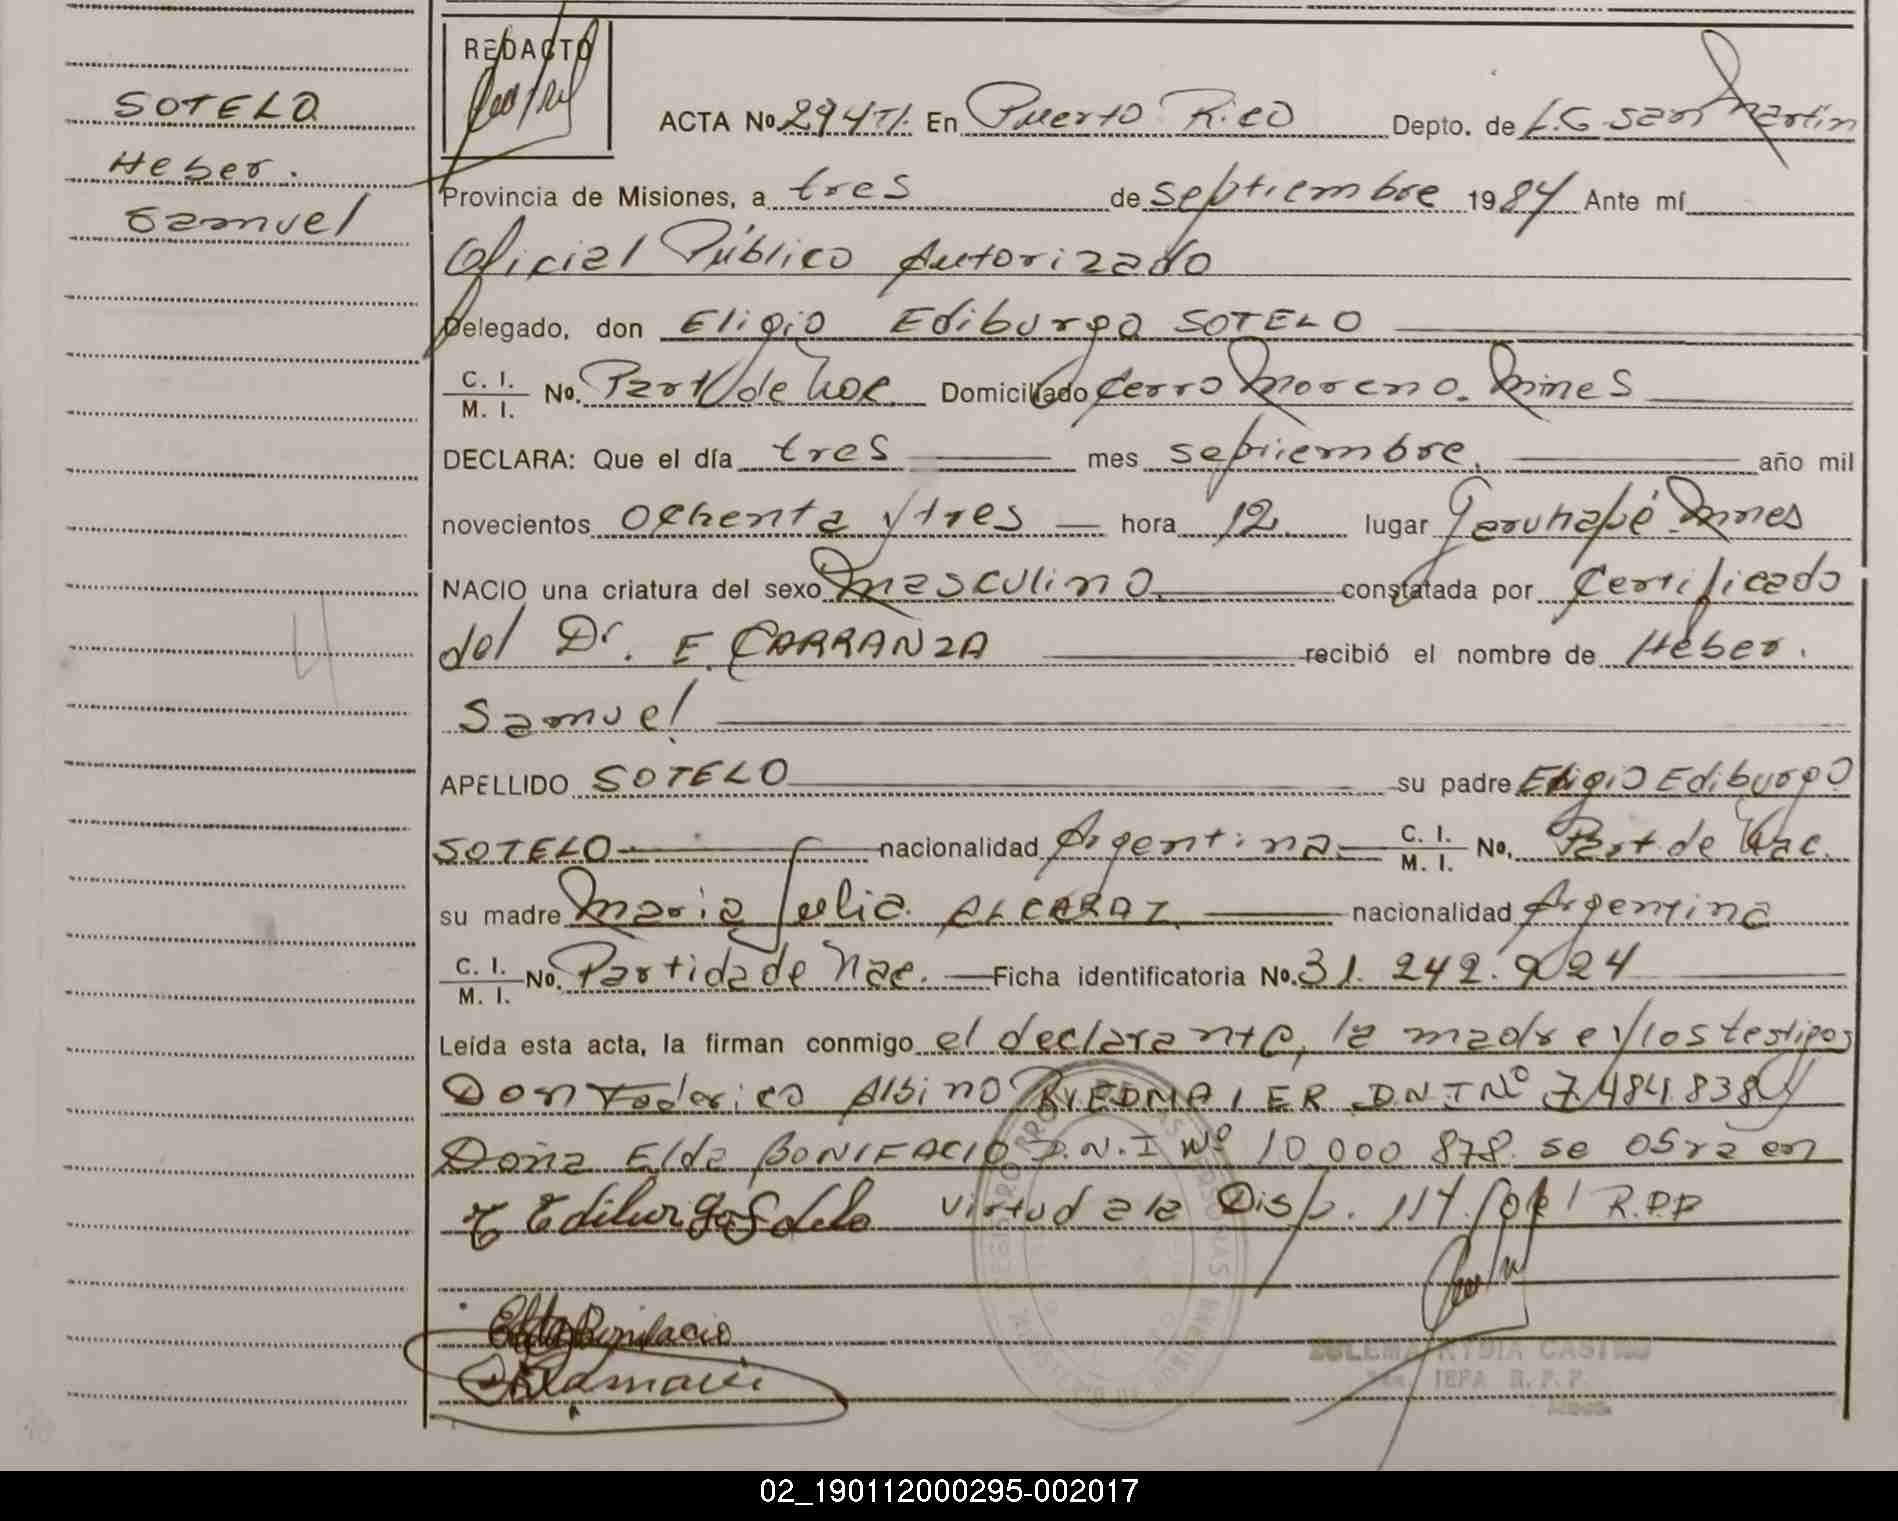 SOTELO
Heber.
Samuel
REDACTO
ACTA Nº 294 TI. En Puerto Rico Depto. de L.G. San Martín
Provincia de Misiones, a tres de septiembre 1984 Ante mí
Oficial Público Autorizado
Delegado, don Eligio Ediburgo SOTELO
C. I. / M. I. No. Part de Nac. Domiciliado Cerro Moreno. Mnes
DECLARA: Que el día tres mes septiembre. año mil
novecientos ochenta y tres hora 12. lugar Garuhapé Mnes
NACIO una criatura del sexo masculino. constatada por Certificado
del Dr. E. CARRANZA recibió el nombre de Heber.
Samuel
APELLIDO SOTELO su padre Eligio Ediburgo
SOTELO nacionalidad Argentina C. I. / M. I. No. Part. de Nac.
su madre Maria Julia ALCARAZ nacionalidad Argentina
C. I. / M. I. No. Partida de Nac. Ficha identificatoria No. 31.242.924
Leída esta acta, la firman conmigo el declarante, la madre y los testigos
Don Federico Albino RIEDMAIER DNI Nº 7.484.838 y
Doña Elda BONIFACIO D.N.I Nº 10.000.878. se obra en
virtud a la Disp. 114. R.P.P
Elda Bonifacio
02_190112000295-002017